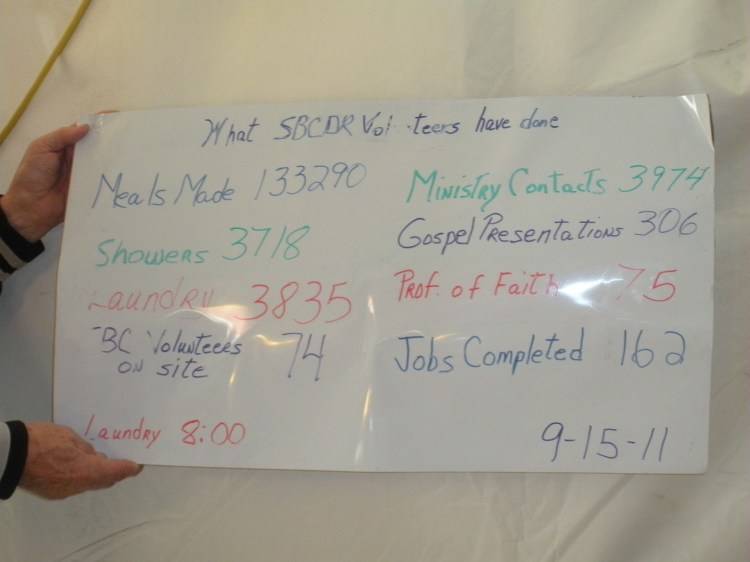 What SBCDR Vol teers have done
Meals Made 133290
Showers 3718
Laundry 3835
BC Volunteers
on site 74
Laundry 8:00
Ministry Contacts 3974
Gospel Presentations 306
Prof. of Faith 75
Jobs Completed 162
9-15-11